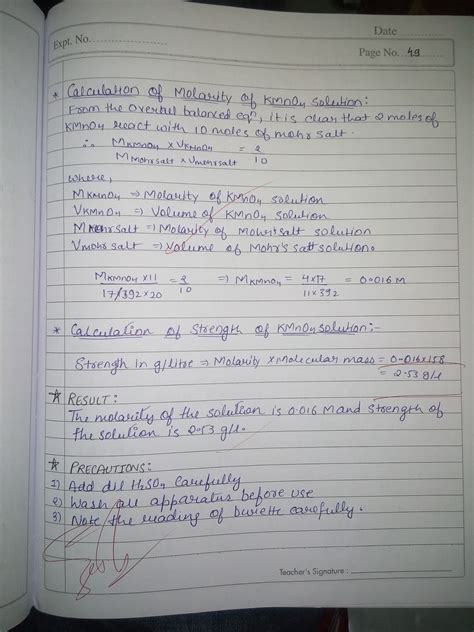 Date
Expt. No.
Page No. 49
* Calculation of Molarity of KMnO4 solution:
From the overall balanced eqn, it is clear that 2 moles of
KMnO4 react with 10 moles of mohr salt.
∴ MKMnO4 × VKMnO4 / Mmohrsalt × Vmohrsalt = 2/10
where,
MKMnO4 => Molarity of KMnO4 solution
VKMnO4 => Volume of KMnO4 solution
Mmohr salt => Molarity of mohr salt solution
Vmohr salt => Volume of Mohr's salt solution.
MKMnO4 × 11 / 17/392 × 20 = 2/10 => MKMnO4 = 4×17 / 11×392 = 0.016 M
* Calculation of Strength of KMnO4 solution:-
Strength in g/litre => Molarity × Molecular mass = 0.016×158
= 2.53 g/l
* RESULT:
The molarity of the solution is 0.016 M and strength of
the solution is 2.53 g/l.
* PRECAUTIONS:
1) Add dil H2SO4 carefully
2) Wash all apparatus before use
3) Note the reading of burette carefully.
Teacher's Signature :